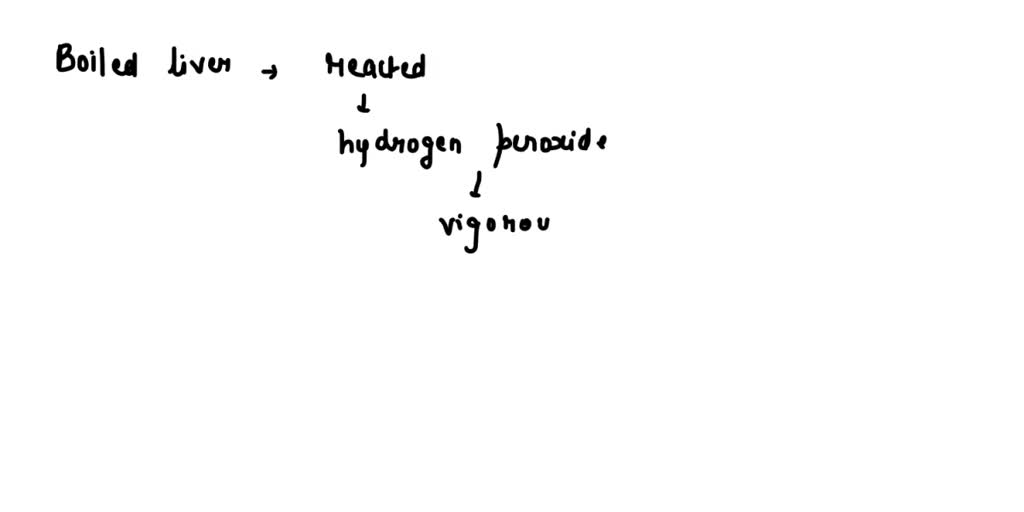 Boiled liver → reacted
↓
hydrogen peroxide
↓
vigorou